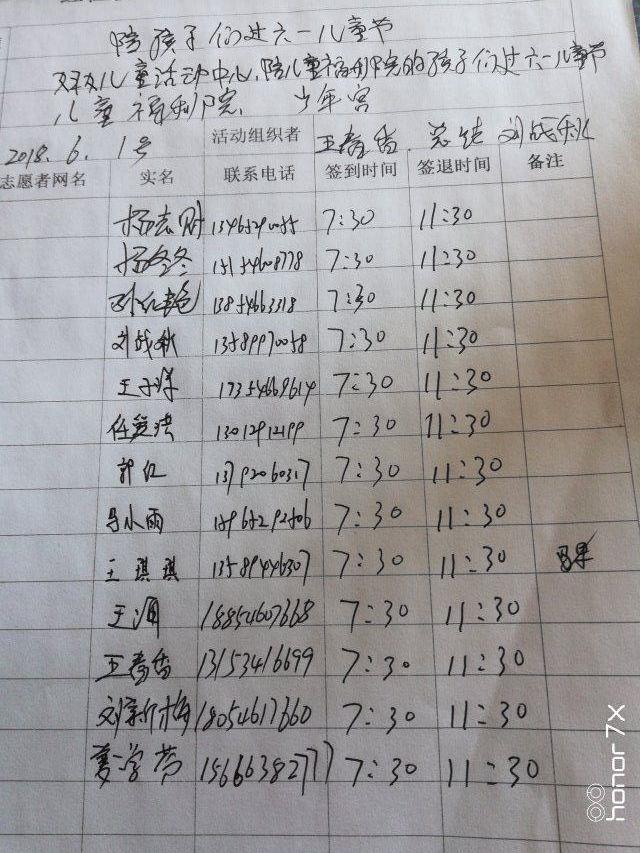 陪孩子们过六一儿童节
双双儿童活动中心,陪儿童福利院的孩子们过六一儿童节
儿童福利院、 少年宫
2018.6.1号 活动组织者 王春香. 总结 刘战秋
志愿者网名 实名 联系电话 签到时间 签退时间 备注
杨志刚 7:30 11:30
杨冬冬 15154608778 7:30 11:30
孙红艳 7:30 11:30
刘战秋 13589970058 7:30 11:30
王子洋 17354669614 7:30 11:30
13012912199 7:30 11:30
郭红 13792060317 7:30 11:30
马小雨 15965292506 7:30 11:30
王琪琪 13589446307 7:30 11:30
王涸 18854607668 7:30 11:30
王春香 13153416699 7:30 11:30
刘新梅 18054617660 7:30 11:30
夏学芹 15666382777 7:30 11:30
honor 7X